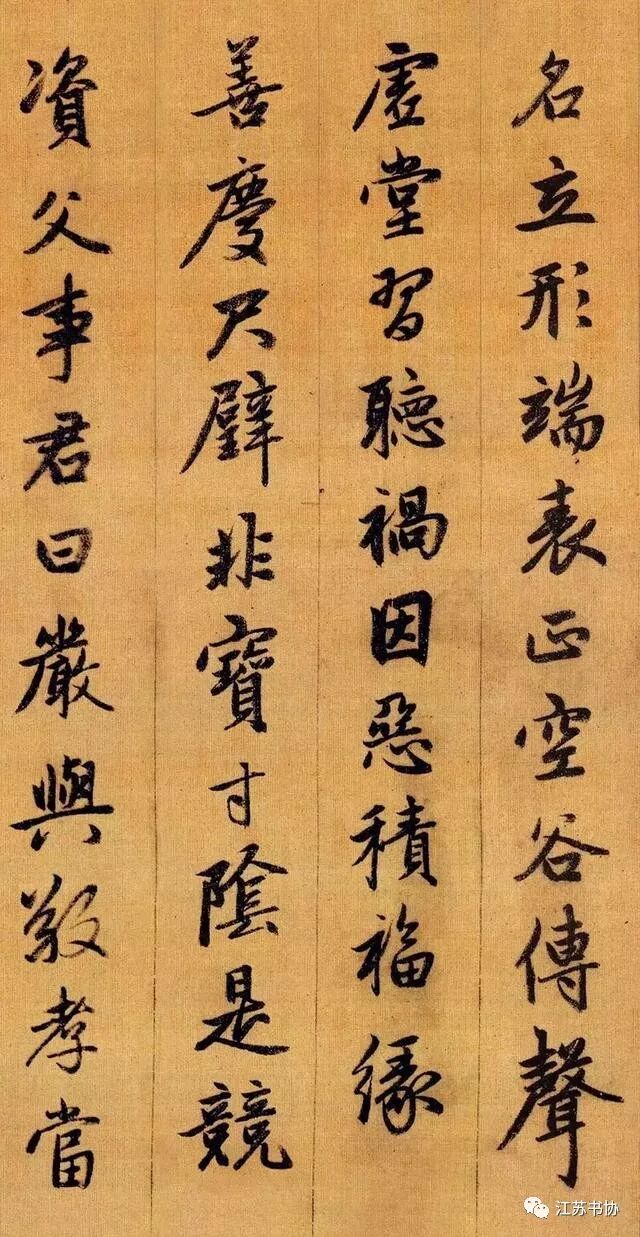 名立形端表正空谷傳聲
虛堂習聽禍因惡積福緣
善慶尺璧非寶寸陰是競
資父事君曰嚴與敬孝當
江苏书协